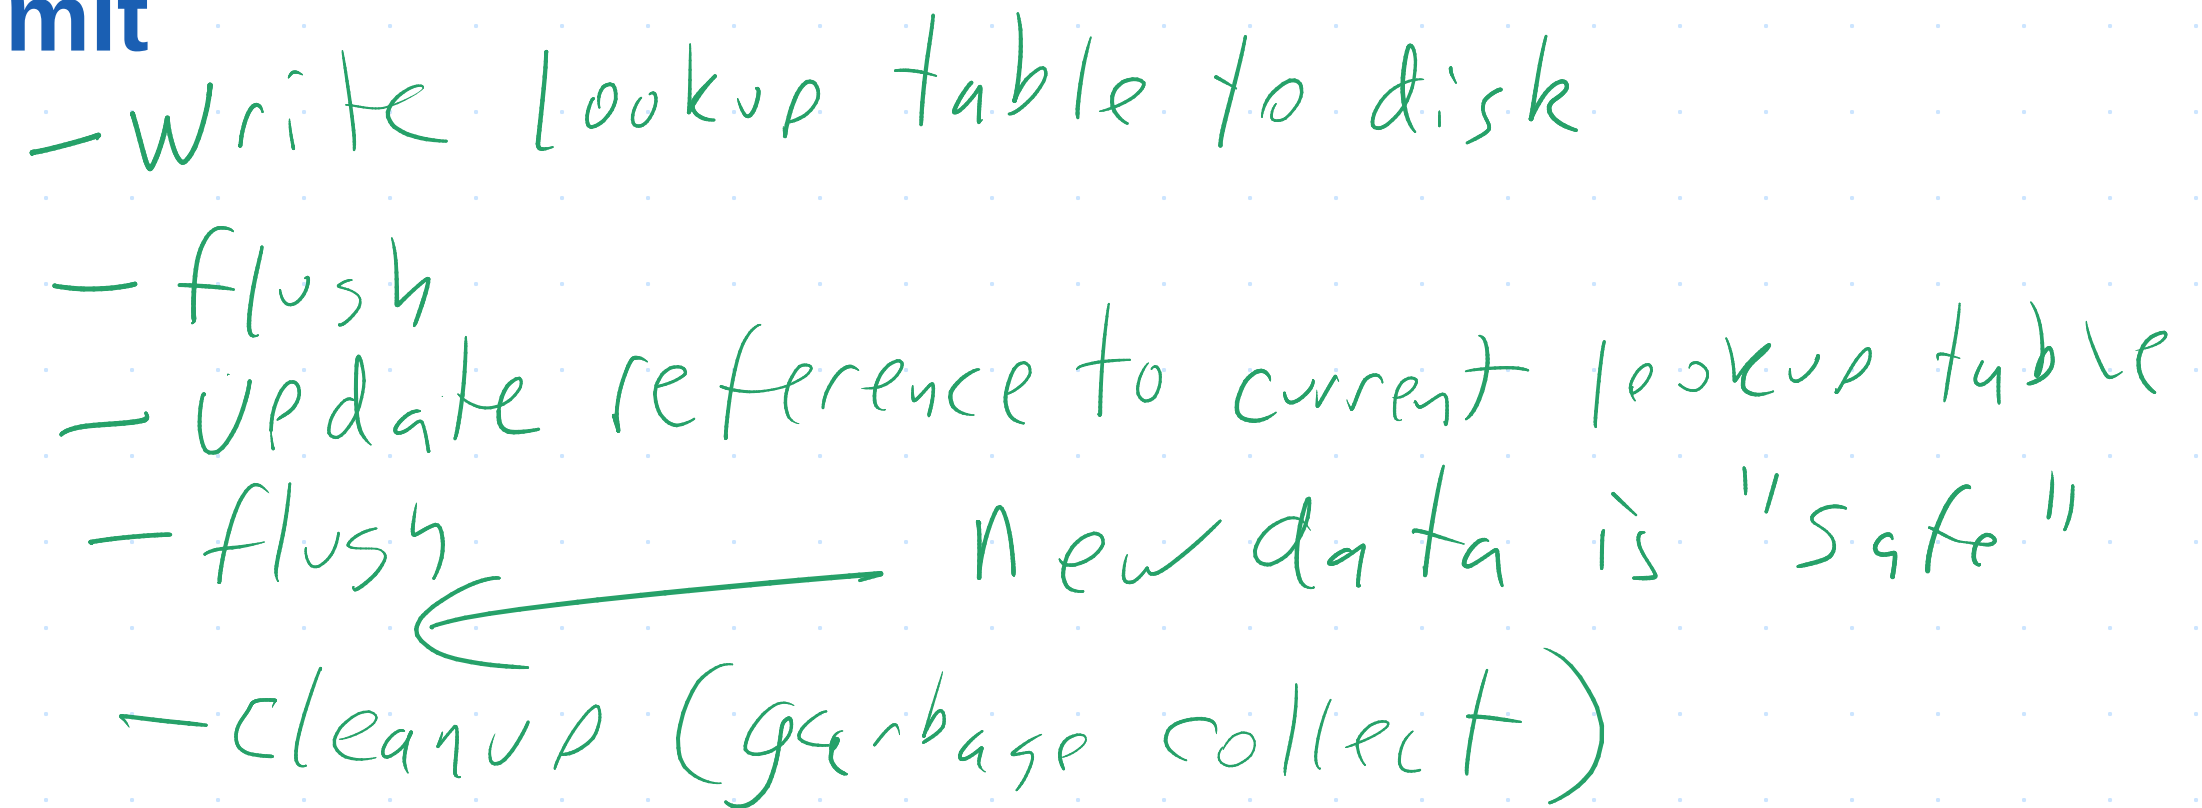 mit
- Write lookup table to disk
- flush
- update reference to current lookup table
- flush New data is "safe"
- cleanup (garbage collect)